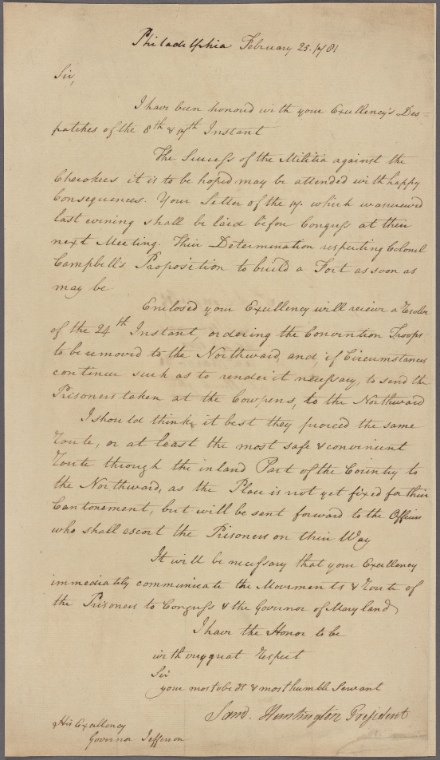 Philadelphia February 25. 1781
Sir,
I have been honored with your Excellency's Des=
patches of the 8th & 17th Instant
The Success of the Militia against the
Cherokees it is to be hoped may be attended with happy
Consequences. Your Letter of the 17. which was received
last evening shall be laid before Congress at their
next Meeting Their Determination respecting Colonel
Campbell's Proposition to build a Fort as soon as
may be
Enclosed your Excellency will receive a Resolve
of the 24th Instant ordering the Convention Troops
to be removed to the Northward, and if Circumstances
continue such as to render it necessary, to send the
Prisoners taken at the Cowpens, to the Northward
I should think it best they proceed the same
Route, or at least the most safe & convenient
Route through the inland Part of the Country to
the Northward, as the Place is not yet fixed for their
Cantonment, but will be sent forward to the Officers
who shall escort the Prisoners on their Way
It will be necessary that your Excellency
immediately communicate the Movements & Route of
the Prisoners to Congress & the Governor of Maryland
I have the Honor to be
with very great Respect
Sir
your most obedt & most humble Servant
Saml. Huntington President
His Excellency
Governor Jefferson